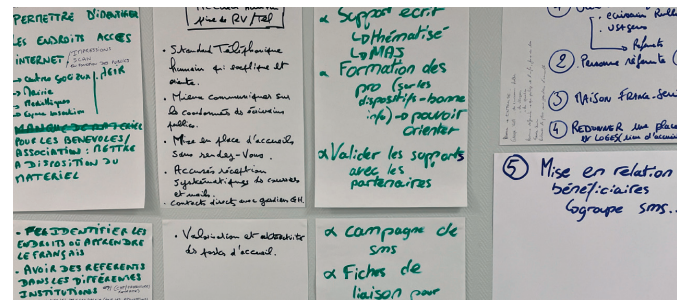 PERMETTRE D'IDENTIFIER
LES ENDROITS ACCES
INTERNET
IMPRESSIONS
SCAN
→ centre social
→ Mairie
→ Médiathèques
MANQUE DE MATERIEL
POUR LES BENEVOLES/
ASSOCIATION : METTRE
A DISPOSITION DU
MATERIEL
- PERIDENTIFIER LES
ENDROITS OÙ APPRENDRE
LE FRANÇAIS
- AVOIR DES REFERENTS
DANS LES DIFFÉRENTES
INSTITUTIONS
de RV/Tel
. Standard Téléphonique
humain qui explique et
oriente.
. Mieux communiquer sur
les coordonnées des écrivains
publics.
. Mise en place d'accueils
sans rendez-vous.
. Accusés réception
systématiques de courriers
et mails.
. contacts direct avec gardien
. Valorisation et attractivité
des postes d'accueil.
α Support écrit
↳ thématisé
↳ MAJ
α Formation des
pro (sur les
dispositifs - bonne
info) → pouvoir
orienter
α Valider les supports
avec les
partenaires
α campagne de
sms
α Fiches de
liaison pour
. écrivain Public
. usagers
→ Refonte
② . Personne référente
③ MAISON FRANCE-Serv
④ REDONNER une place
⑤ Mise en relation
bénéficiaires
(groupe sms..